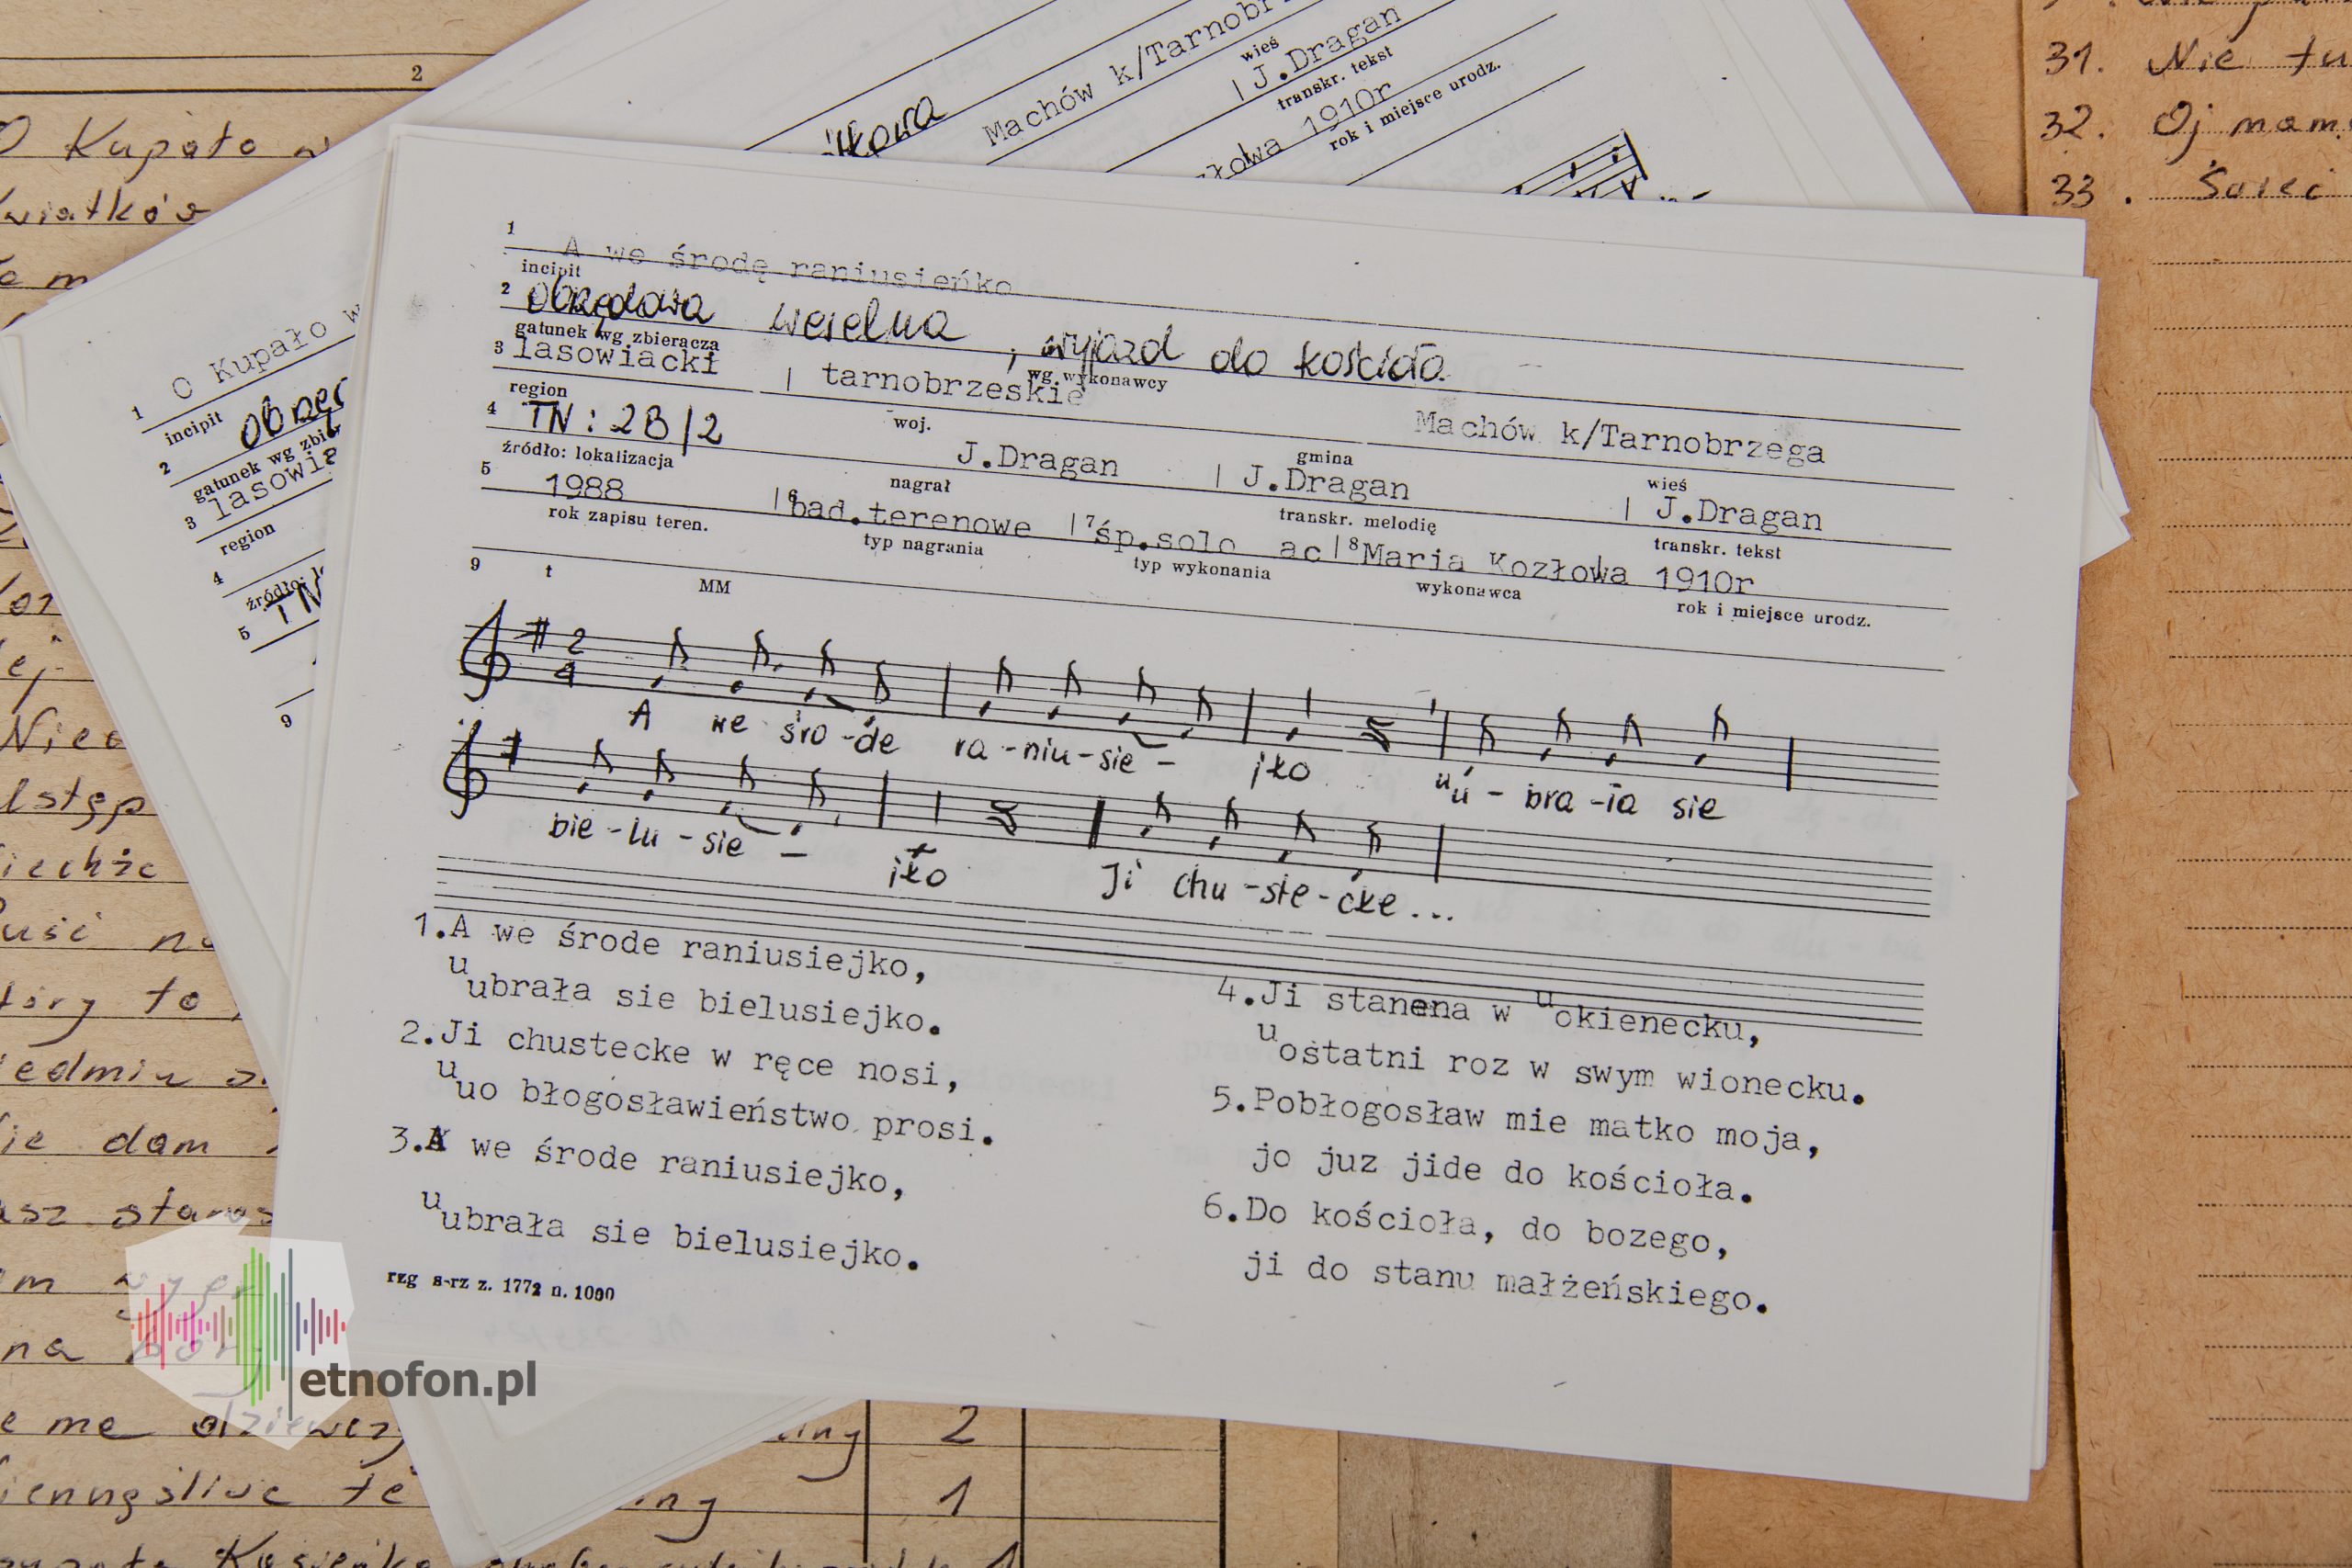 2
O Kupało w
wiatków
1 O Kupało w
incipit
2
gatunek wg
3 lasowia
region
4
5
9
Machów k/Tarnobr
wieś
J.Dragan
transkr. tekst
1910r
rok i miejsce urodz.
31. Nie tu
32. Oj mam
33.
1 A we środę raniusieńko
incipit
2 obrzędowa weselna, wyjazd do kościoła
gatunek wg zbieracza
wg wykonawcy
3 lasowiacki | tarnobrzeskie Machów k/Tarnobrzega
region woj. gmina wieś
4 TN: 2B/2 J.Dragan | J.Dragan | J.Dragan
źródło: lokalizacja nagrał transkr. melodię transkr. tekst
5 1988 | 6 bad.terenowe | 7 śp.solo ac | 8 Maria Kozłowa 1910r
rok zapisu teren. typ nagrania typ wykonania wykonawca rok i miejsce urodz.
9 t MM
2
4
A we śro-de ra-niu-sie- jko uu-bra-ła sie
bie-lu-sie- jko Ji chu-ste-cke...
1.A we środe raniusiejko,
uubrała sie bielusiejko.
2.Ji chustecke w ręce nosi,
uuo błogosławieństwo prosi.
3.A we środe raniusiejko,
uubrała sie bielusiejko.
4.Ji stanena w uokienecku,
uostatni roz w swym wionecku.
5.Pobłogosław mie matko moja,
jo juz jide do kościoła.
6.Do kościoła, do bozego,
ji do stanu małżeńskiego.
rzg s-rz z. 1772 n. 1000
etnofon.pl
2
1